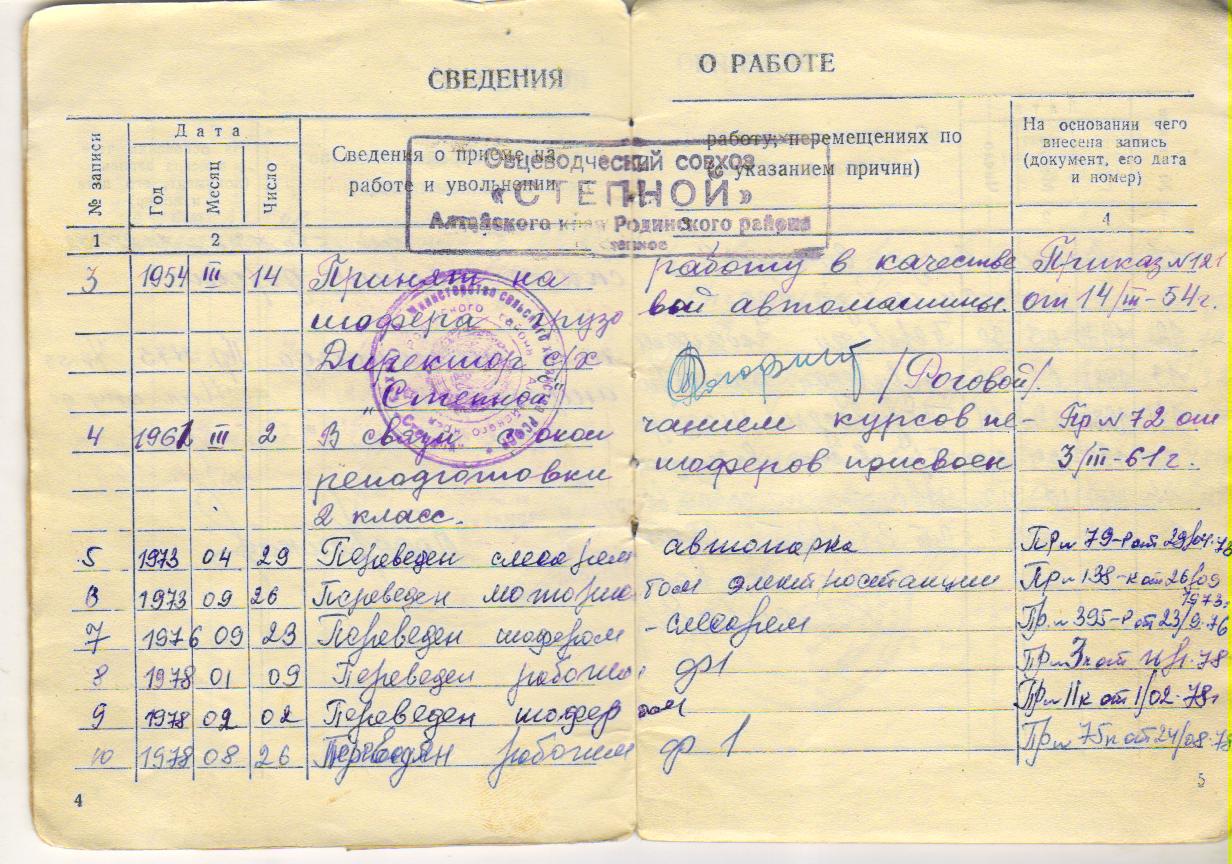 СВЕДЕНИЯ О РАБОТЕ
№ записи
Дата
Год
Месяц
Число
Сведения о приеме на работу, перемещениях по
работе и увольнении указанием причин)
На основании чего
внесена запись
(документ, его дата
и номер)
Овцеводческий совхоз
«СТЕПНОЙ»
Алтайского края Родинского района
степное
1 2 3 4
3 1954 III 14 Принят на работу в качестве Приказ №121
шофера грузо вой автомашины. от 14/III-54г.
Директор с/х
"Степной" /Роговой/.
4 1961 III 2 В связи с окон чанием курсов пе- Пр № 72 от
реподготовки шоферов присвоен 3/III-61г.
2 класс.
5 1973 04 29 Переведен слесарем автопарка Пр№ 79-к от 29/04.73
6 1973 09 26 Переведен моторис том электростанции Пр№ 138-к от 26/09
1973г.
7 1976 09 23 Переведен шофером -слесарем Пр.№ 395-к от 23/9.76
8 1978 01 09 Переведен рабочим ф1 Пр№ 3к от
9 1978 02 02 Переведен шофер ом Пр№ 11к от 1/02.78г
10 1978 08 26 Переведен рабочим ф 1 Пр№ 75к от 24/08.78
4 5